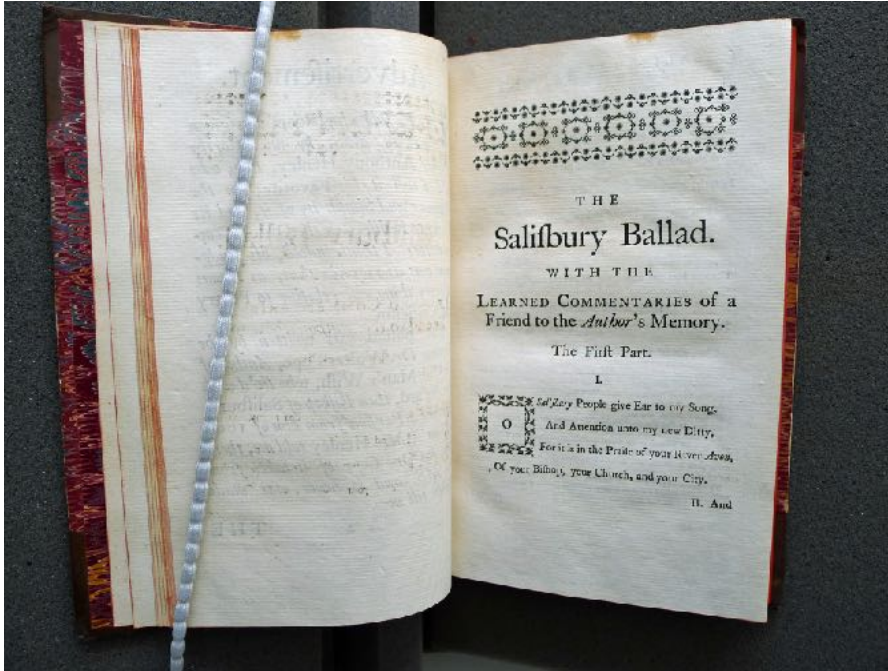 THE
Saliſbury Ballad.
WITH THE
LEARNED COMMENTARIES of a
Friend to the Author's Memory.
The Firſt Part.
I.
O Saliſbury People give Ear to my Song,
And Attention unto my new Ditty,
For it is in the Praiſe of your River Avon,
Of your Biſhop, your Church, and your City.
II. And